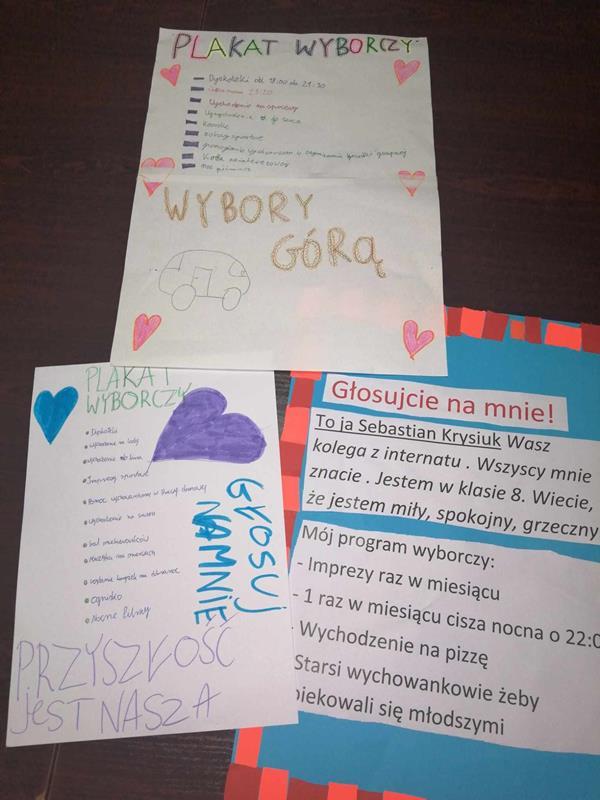 PLAKAT WYBORCZY
Dyskoteki od 18:00 do 21:30
Wychodzenie na spacery
kino
WYBORY
GÓRĄ
PLAKAT
WYBORCZY
Dyskoteki
Wychodzenie na lody
Wychodzenie do kina
Imprezy sportowe
Pomoc wychowawców w pracy domowej
Wychodzenie na basen
bal przebierańców
Muzyka na
Ognisko
Nocne filmy
GŁOSUJ
NAMNIE
PRZYSZŁOŚĆ
jEST NASZA
Głosujcie na mnie!
To ja Sebastian Krysiuk Wasz
kolega z internatu . Wszyscy mnie
znacie . Jestem w klasie 8. Wiecie,
że jestem miły, spokojny, grzeczny
Mój program wyborczy:
- Imprezy raz w miesiącu
- 1 raz w miesiącu cisza nocna o 22:0
Wychodzenie na pizzę
Starsi wychowankowie żeby
piekowali się młodszymi